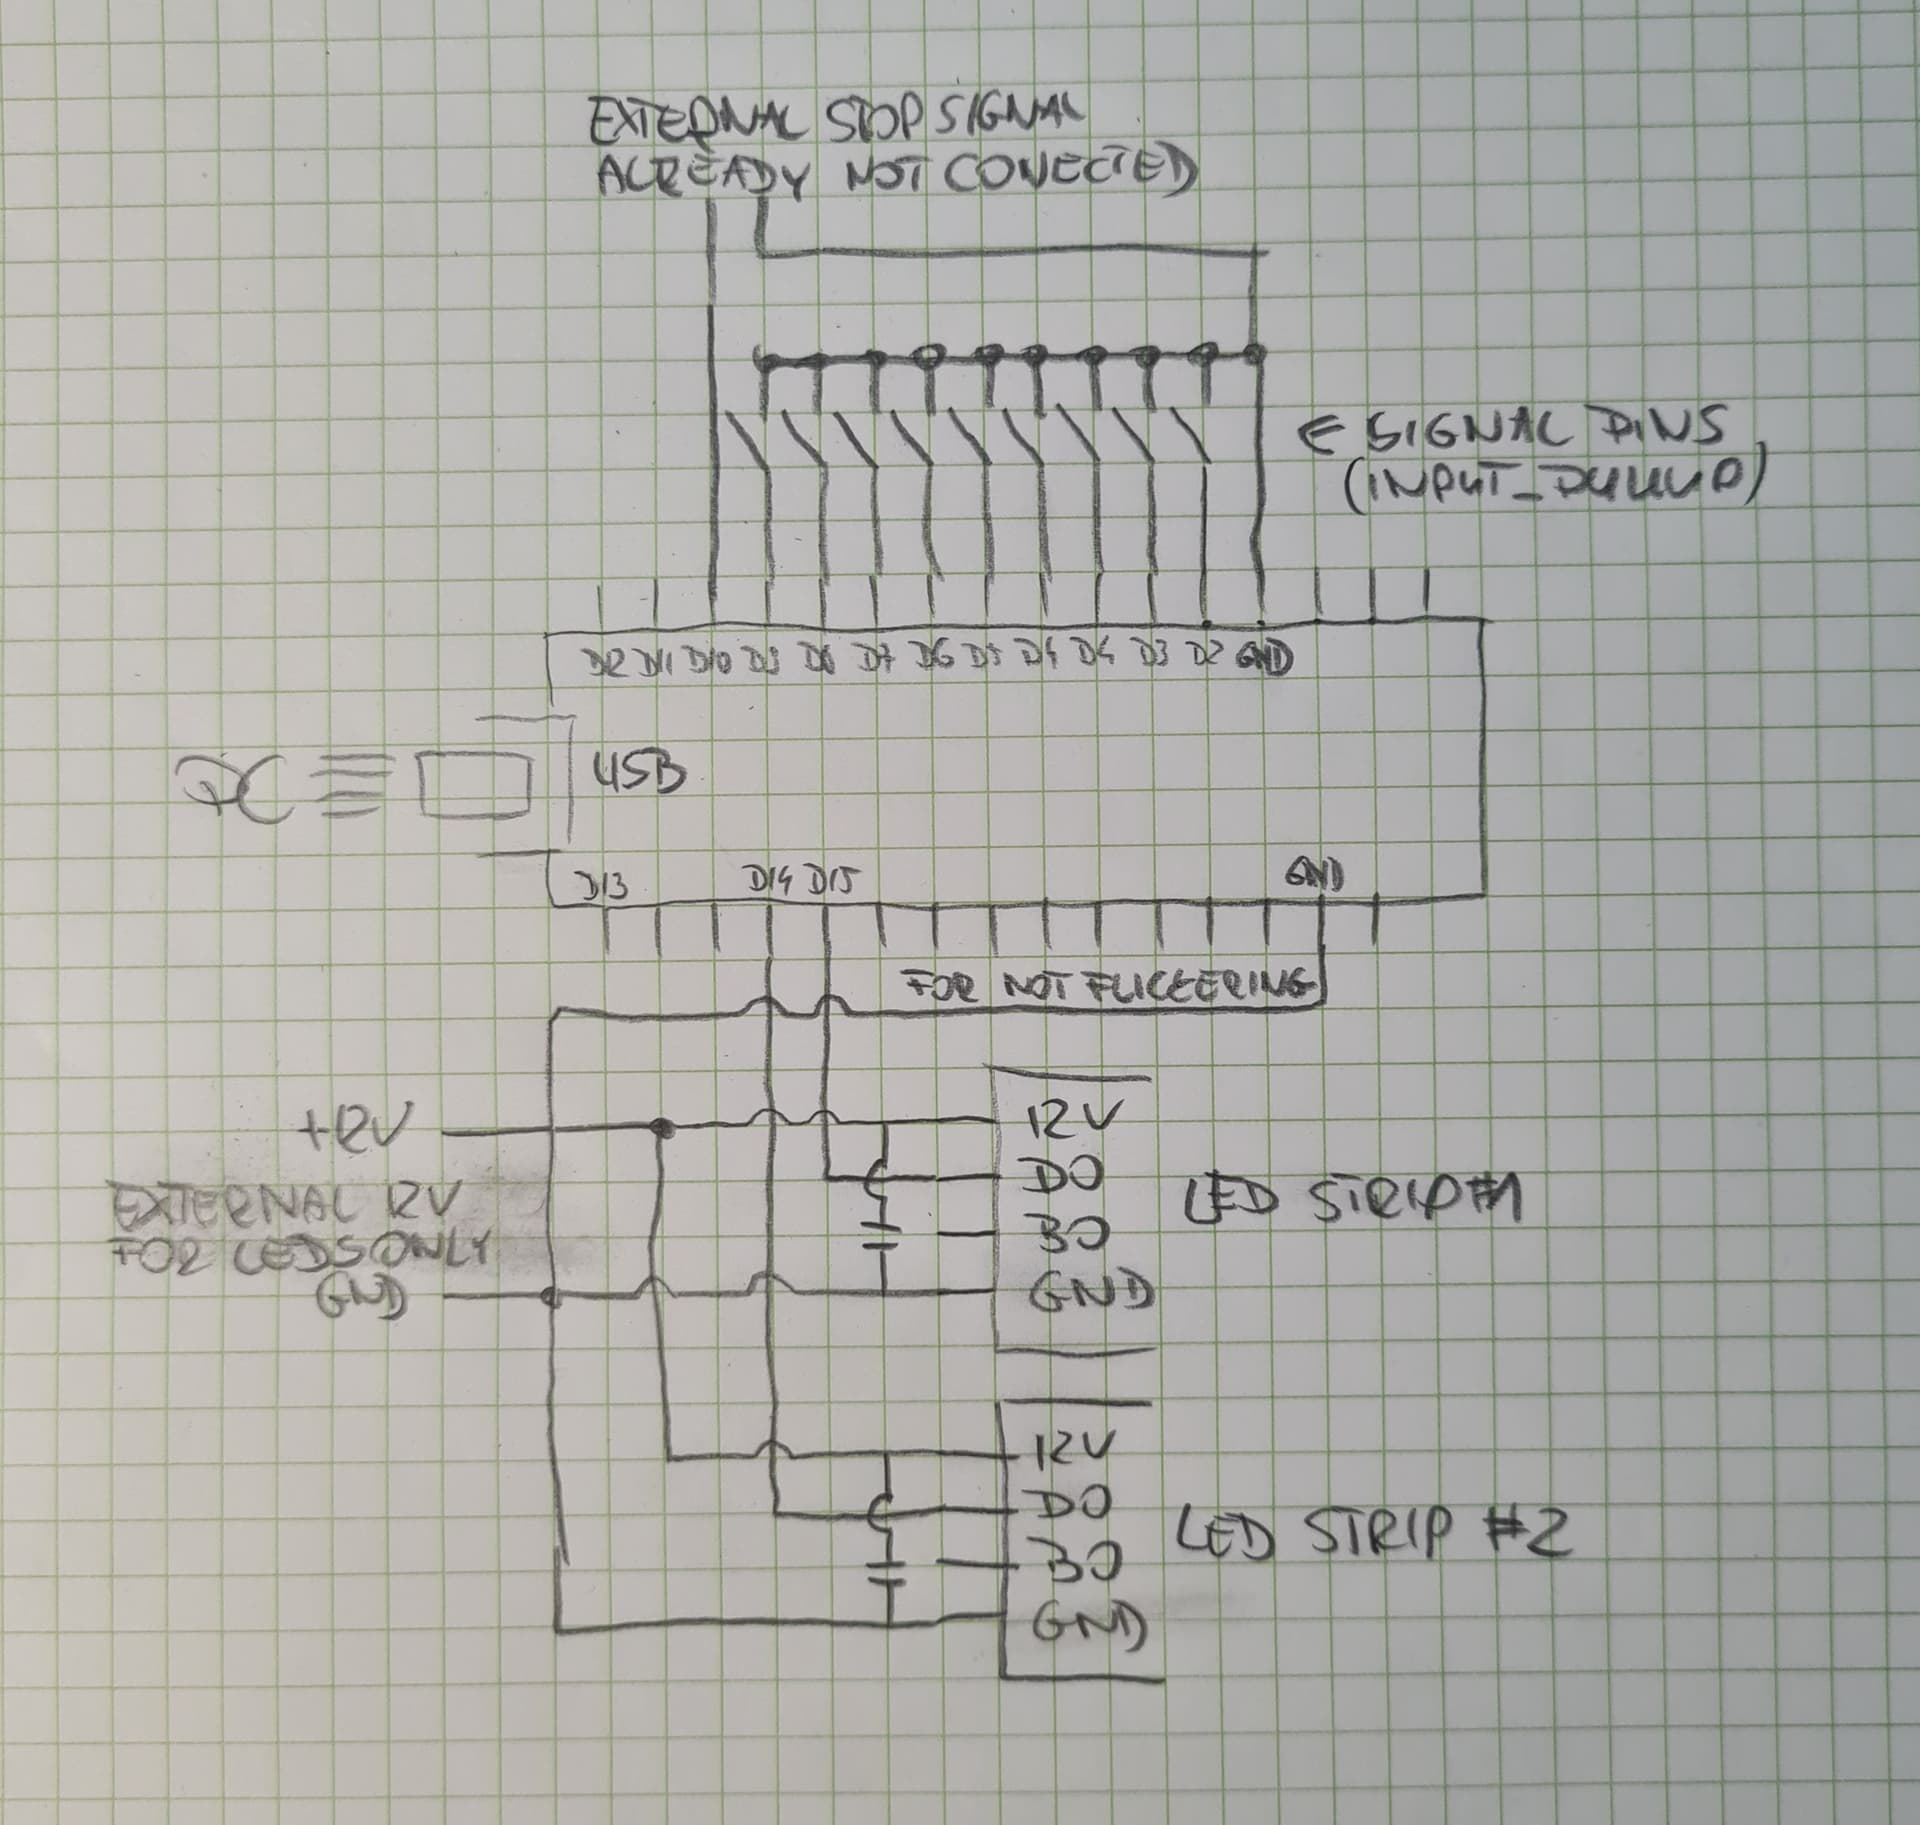 EXTERNAL STOP SIGNAL
ALREADY NOT CONECTED
← SIGNAL PINS
(INPUT_PULLUP)
D12 D11 D10 D9 D8 D7 D6 D5 D4 D4 D3 D2 GND
PC USB
D13 D14 D15 GND
FOR NOT FLICKERING
+12V
12V
D0
EXTERNAL 12V
FOR LEDS ONLY
B0
LED STRIP #1
GND
GND
12V
D0
B0
LED STRIP #2
GND